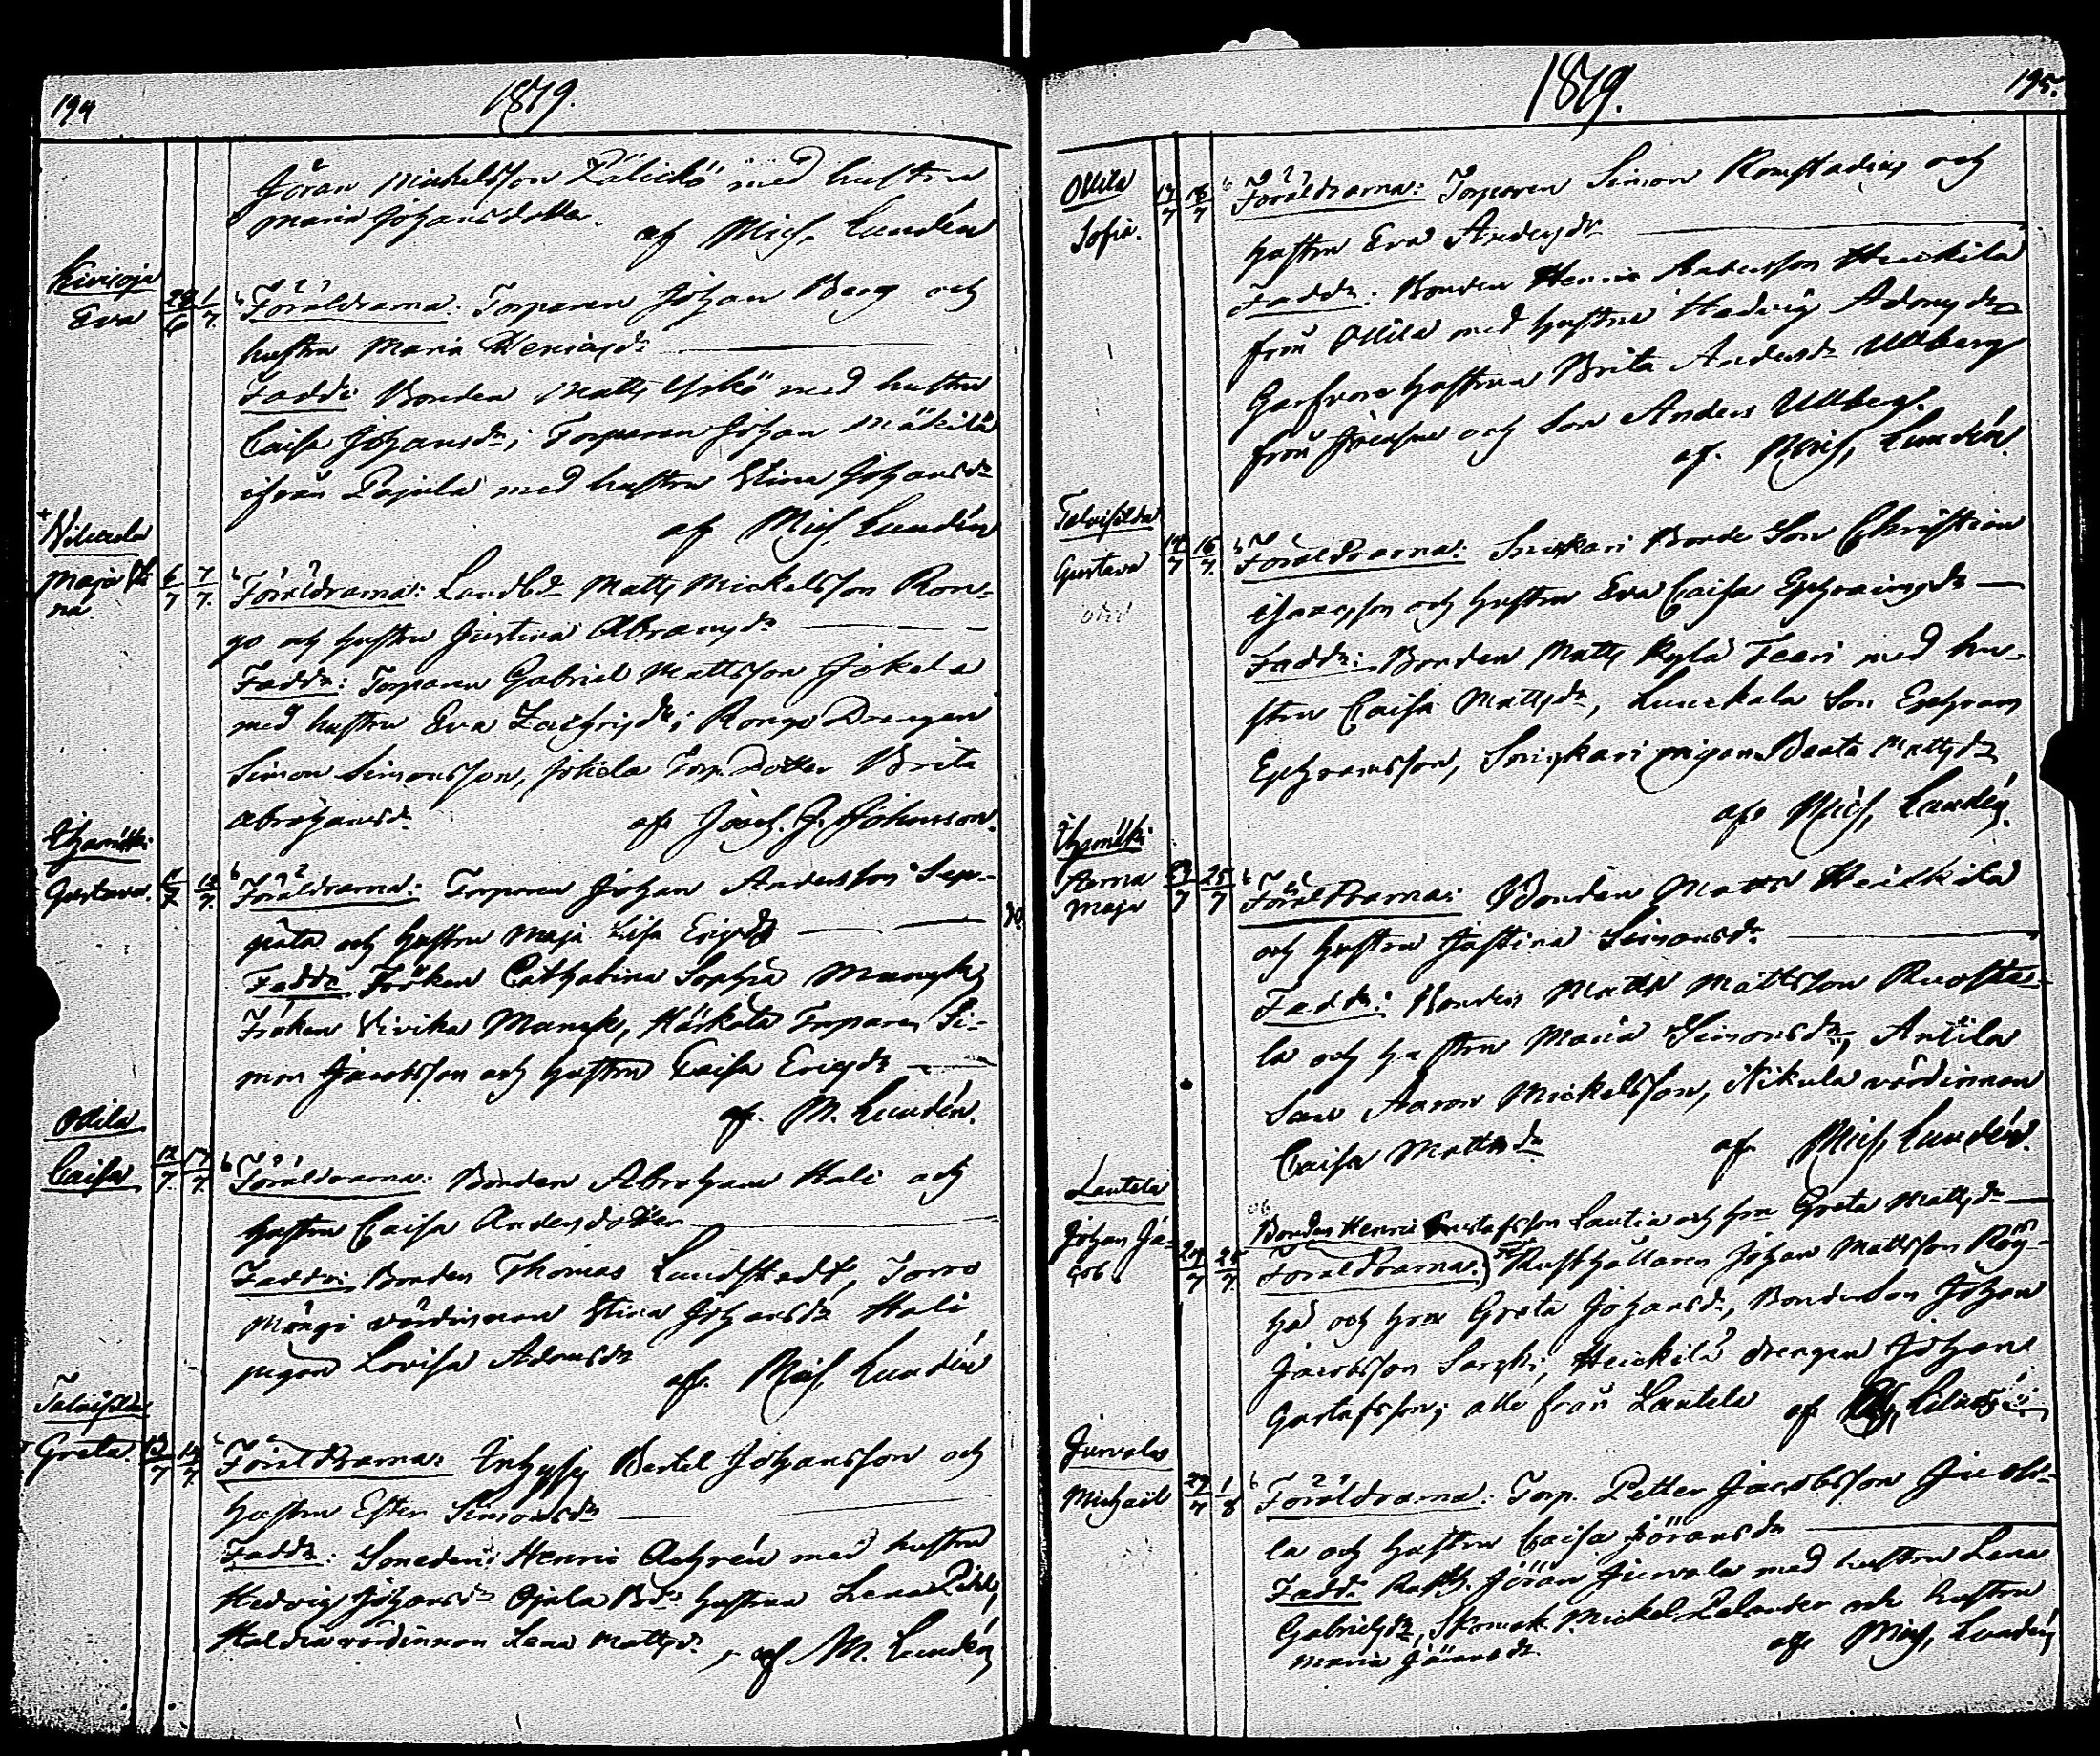 194
1819.
Jöran Mickelsson Pälickö med hustru
Maria Johansdotter. af Mich. Lundén
Kivioja
Eva 28/6 1/7 Föräldrarna: Torparen Johan Berg och
hustru Maria Henricsdr
Faddr: Bonden Matts Yrkö med hustru
Caisa Johansdr; Torparen Johan Mäkilä
ifrån Pajula med hustru Stina Johansdr
af Mich. Lundén
Maja Sti
na 6/7 7/7 Föräldrarna: Landbdr Matts Mickelsson Ron-
go och hustru Justina Abramsdr
Faddr: Torparen Gabriel Mattsson Jokela
med hustru Eva Zachrisdr; Rongo Drengen
Simon Simonsson, Jokela Torp. Dotter Brita
Abrahamsdr af Joach. J. Johnsson.
Gustava. 11/7 12/7 Föräldrarna: Torparen Johan Andersson Sep-
pälä och hustru Maja Lisa Ericsdr
Faddr Fröken Catharina Sophia Munck,
Fröken Vivika Munck, Härkälä Torparen Si-
mon Jacobsson och hustru Caisa Ericsdr
af. M. Lundén.
Ollila
Caisa 12/7 17/7 Föräldrarna: Bonden Abraham Hali och
hustru Caisa Andersdotter
Faddr: Bonden Thomas Lundstedt, Torro
Mängi värdinnan Stina Johansdr Hali
pigan Lovisa Adamsdr af. Mich. Lundén
Talvisilda
Greta. 13/7 14/7 Föräldrarna: Inhyses Bertel Johansson och
hustru Ester Simonsdr
Faddr: Smeden Henric Achrén med hustru
Hedvig Johansdr Ojala Bdr hustrun Lena Pihl,
Haldia värdinnan Lena Mattsdr, af M. Lundén
1819.
195.
Ollila
Sofia. 14/7 18/7 Föräldrarna: Torparen Simon Romstadius och
hustru Eva Andersdr
Faddr: Bonden Henric Andersson Heickilä
från Ollila med hustru Hedvig Adamsdr
Garfvare hustrun Brita Andersdr Ullberg
från och Son Anders Ullberg.
af. Mich. Lundén.
Talvisilda
Gustava 14/7 16/7 Föräldrarna: Snickari Bonde Son Christian
Isaacsson och hustru Eva Caisa Ephraimsdr
Faddr: Bonden Matts Kylä Teeri med hu-
stru Caisa Mattsdr, Luuckala Son Ephraim
Ephraimsson, pigan Beata Mattsdr
af. Mich. Lundén.
Anna
Maja 23/7 25/7 Föräldrarna: Bonden Matts Heickilä
och hustru Justina Simonsdr
Faddr: Bonden Matts Mattsson Ruoste-
la och hustru Maria Simonsdr, Antila
Son Aaron Mickelsson, Nikula värdinnan
Caisa Mattsdr af. Mich. Lundén.
Lautela
Johan Ja-
cob. 24/7 25/7 Bonden Henric Gustafsson Lautia och hru Greta Mattsdr
Föräldrarna: Rusthållaren Johan Mattsson Röy-
hä och hru Greta Johansdr, Bonde Son Johan
Jacobsson Heickilä drengen Johan
Gustafsson; alle från Lautela af
Jurvala
Michaël 29/7 1/8 Föräldrarna: Torp. Petter Jacobsson
la och hustru Caisa Jöransdr
Faddr Rusth. Jöran Jurvala med hustru Lena
Gabrielsdr, Skomak. Mickel Pelander och hustru
Maria Jöransdr. af Mich. Lundén